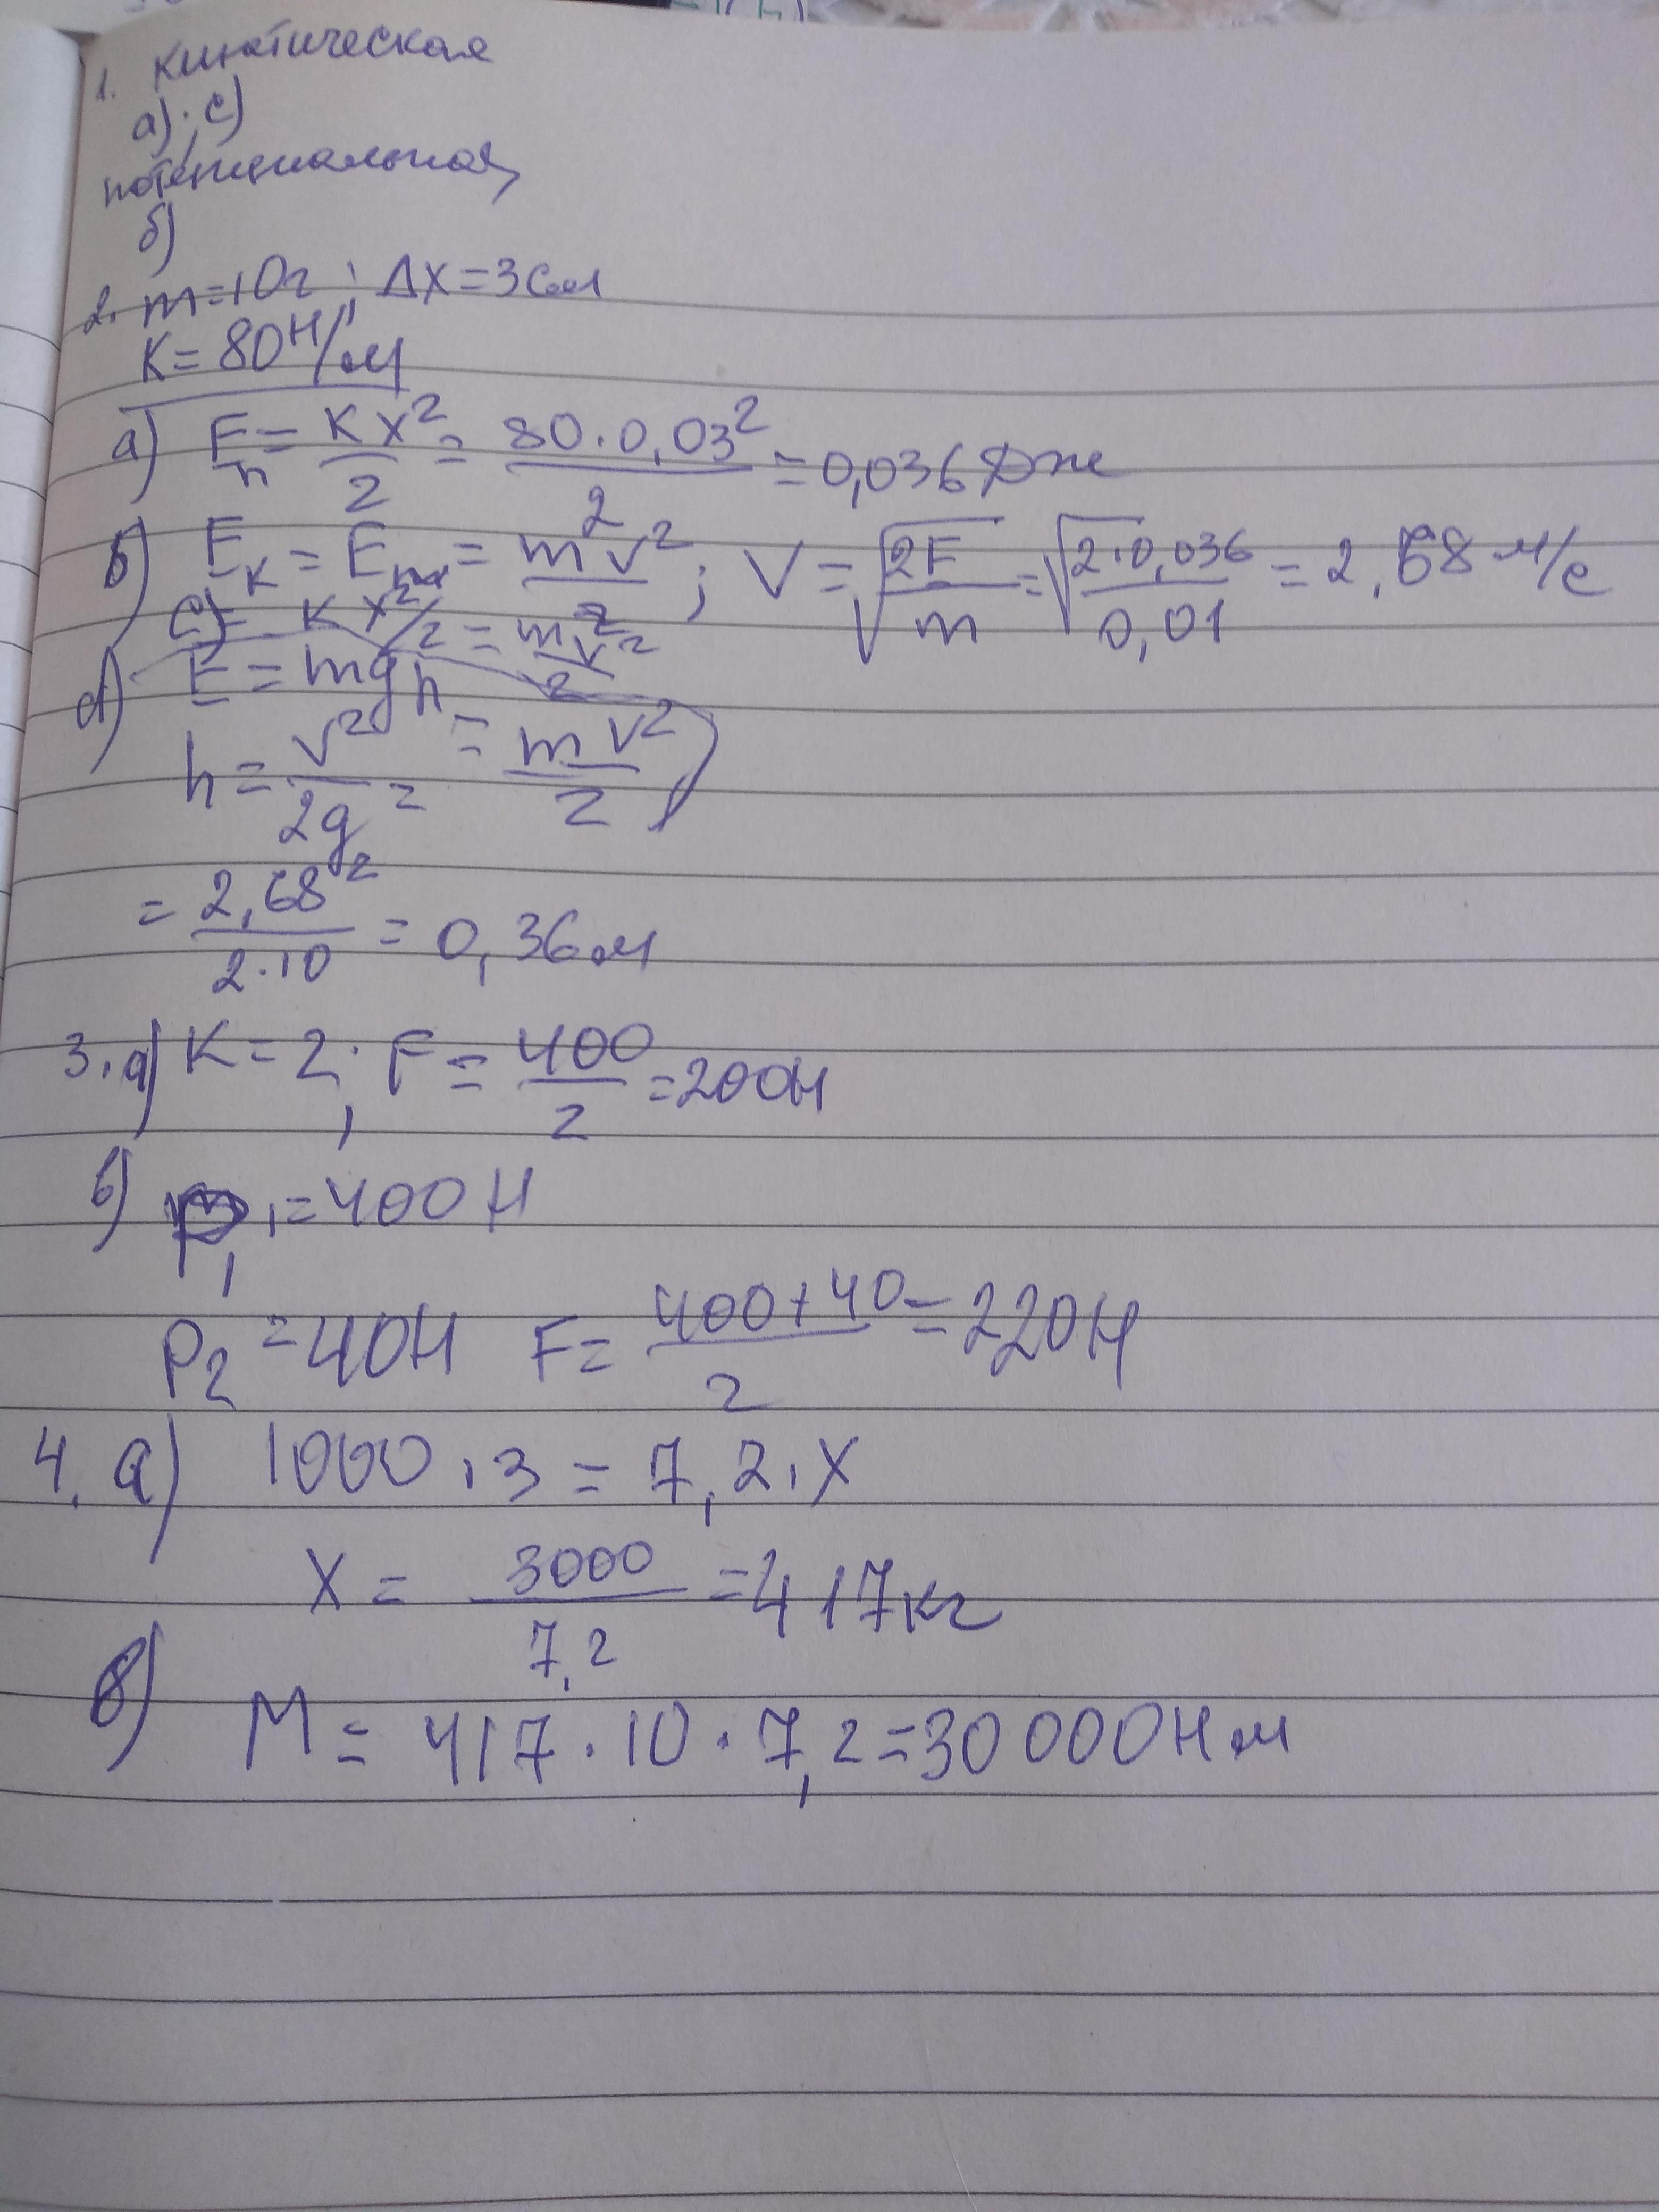 1. Кинетическая
а); с)
потенциальная
б)
2. m=10г; Δx=3см
K=80 Н/м
а) Eп = Kx²/2 = 80·0,03²/2 = 0,036 Дж
б) Eк = Eп = mv²/2; V = √2E/m = √2·0,036/0,01 = 2,68 м/с
с) Kx²/2 = mv²/2
d) E = mgh = mv²/2
h = v²/2g =
= 2,68²/2·10 = 0,36м
3. а) K=2; F = 400/2 = 200Н
в) P₁ = 400Н
P₂ = 40Н F = 400+40/2 = 220Н
4. а) 1000·3 = 7,2·x
x = 3000/7,2 = 417кг
в) M = 417·10·7,2 = 30000Нм